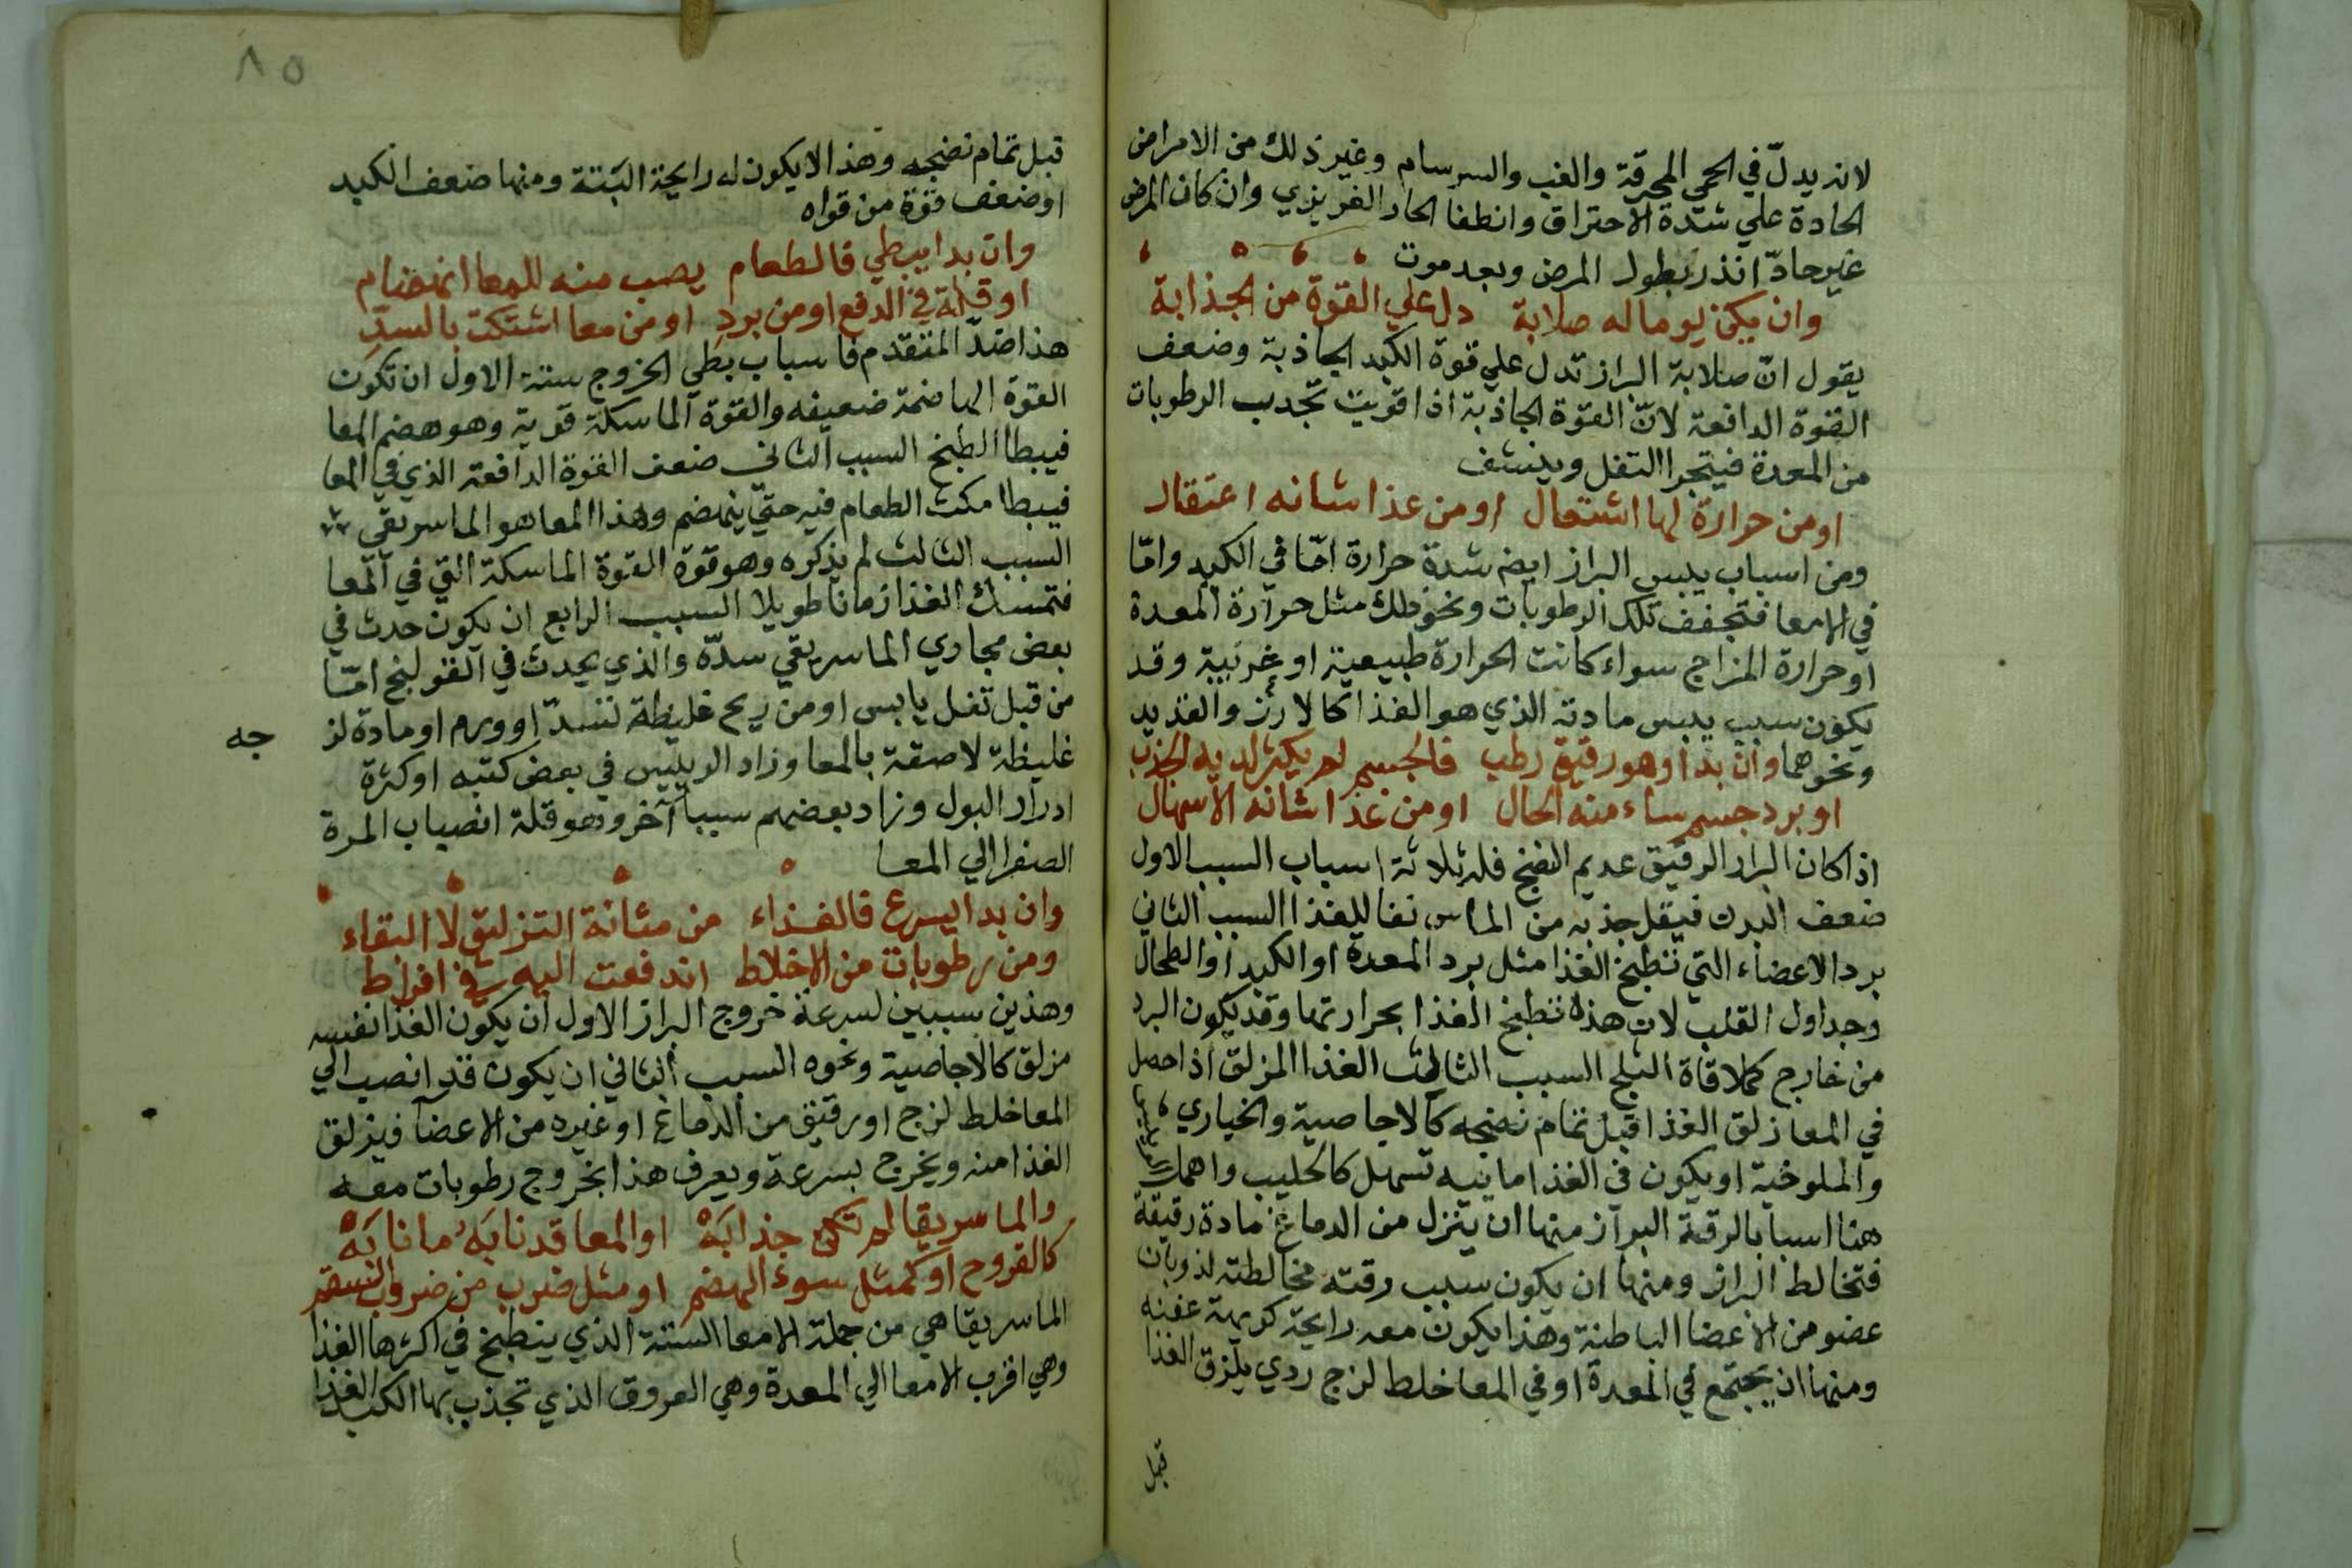 لانه يدلّ في الحمي المحرقة والغب والسرسام وغير ذلك من الامراض
الحادة علي شدة الاحتراق وانطفا الحار الغريزي وان كان المرض
غير حادّ انذر بطول المرض وبعد موت
وان يكن يوما له صلابة دل علي القوة من الجذابة
يقول انّ صلابة البراز تدل علي قوة الكبد الجاذبة وضعف
القوة الدافعة لانّ القوة الجاذبة اذا قويت تجدب الرطوبات
من المعدة فيتجرا التفل وينشف
او من حرارة لها اشتعال او من غذا شانه اعتقال
ومن اسباب يبس البراز ايض شدة حرارة امّا في الكبد وامّا
في الامعا فتجفف تلك الرطوبات ونحو ذلك مثل حرارة المعدة
او حرارة المزاج سواء كانت الحرارة طبيعية او غريبية وقد
يكون سبب يبس مادته الذي هو الغذا كالارز والقديد
ونحوهما وان بدا وهو رقيق رطب فالجسم لم يكثر لديه الجذب
او برد جسم ساء منه الحال او من غذا شانه الاسهال
اذا كان البراز الرقيق عديم النضج فله ثلاثة اسباب السبب الاول
ضعف البدن فيقل جذبه من الماسر نقا للغذا السبب الثاني
برد الاعضاء التي تنطبخ الغذا مثل برد المعدة او الكبد او الطحال
وجداول القلب لان هذه تنطبخ الغذا بحرارتها وقد يكون البرد
من خارج كملاقاة الثلج السبب الثالث الغذا المزلق اذا حصل
في المعا زلق الغذا قبل تمام نضجه كالاجاصية والخياري
والملوخية او يكون في الغذا مانيه تسهل كالحليب واهمل
هنا اسبابا لرقة البراز منها ان ينزل من الدماغ مادة رقيقة
فتخالط البراز ومنها ان يكون سبب رقته مخالطته لذوبان
عضو من الاعضا الباطنة وهذا يكون معه رايحة كريهة عفنه
ومنها ان يجتمع في المعدة او في المعا خلط لزج ردي يلزق الغذا
قبل
٨٥
قبل تمام نضجه وهذا لا يكون له رايحة البتة ومنها ضعف الكبد
او ضعف قوة من قواه
وان بدا يبطي فالطعام يصب منه للمعا انهضام
او قلة في الدفع او من برد او من معا اشتكت بالسدّ
هذا ضدّ المتقدم فاسباب بطي الخروج ستة الاول ان تكون
القوة الهاضمة ضعيفه والقوة الماسكة قوية وهو هضم المعا
فيبطا الطبخ السبب الثاني ضعف القوة الدافعة الذي في المعا
فيبطا مكث الطعام فيه حتي ينهضم وهذا المعا هو الماسريقي
السبب الثالث لم يذكره وهو قوة القوة الماسكة التي في المعا
فتمسك الغذا زمانا طويلا السبب الرابع ان يكون حدث في
بعض مجاري الماسريقي سدّة والذي يحدث في القولنج امّا
من قبل تفل يابس او من ريح غليظة تسدّ او ورم او مادة لز
جه
غليظة لاصقة بالمعا وزاد الرييس في بعض كتبه او كثرة
ادرار البول وزاد بعضهم سببا آخر وهو قلة انصباب المرة
الصفرا الي المعا
وان بدا يسرع فالغذاء من مثانة التزليق لا البقاء
ومن رطوبات من الاخلاط اندفعت اليه في افراط
وهذين سببين لسرعة خروج البراز الاول ان يكون الغذا نفسه
مزلق كالاجاصية ونحوه السبب الثاني ان يكون قد انصب الي
المعا خلط لزج او رقيق من الدماغ او غيره من الاعضآ فيزلق
الغذا منه ويخرج بسرعة ويعرف هذا بخروج رطوبات معه
والماسريقا لم تكن جذابَهْ او المعا قد نابَهُ ما نابَهْ
كالقروح او كمثل سوء الهضم او مثل ضرب من ضروب السقم
الماسريقا هي من جملة الامعا الستة الذي ينطبخ في اكثرها الغذا
وهي اقرب الامعا الي المعدة وهي العروق الذي تجذب بها الكبد الغذا